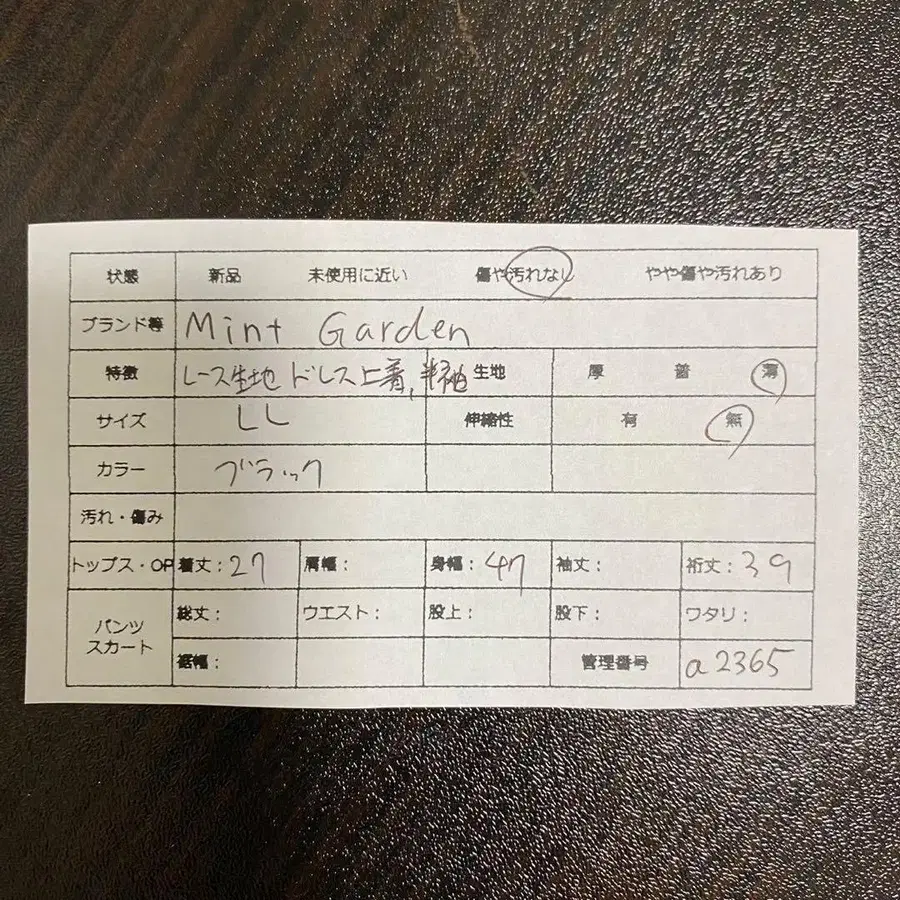 状態 新品 未使用に近い 傷や汚れなし やや傷や汚れあり
ブランド等 Mint Garden
特徴 レース生地 ドレス上着,半袖 生地 厚 普 薄
サイズ LL 伸縮性 有 無
カラー ブラック
汚れ・傷み
トップス・OP 着丈:27 肩幅: 身幅:47 袖丈: 裄丈:39
パンツ スカート 総丈: ウエスト: 股上: 股下: ワタリ:
裾幅: 管理番号 a2365